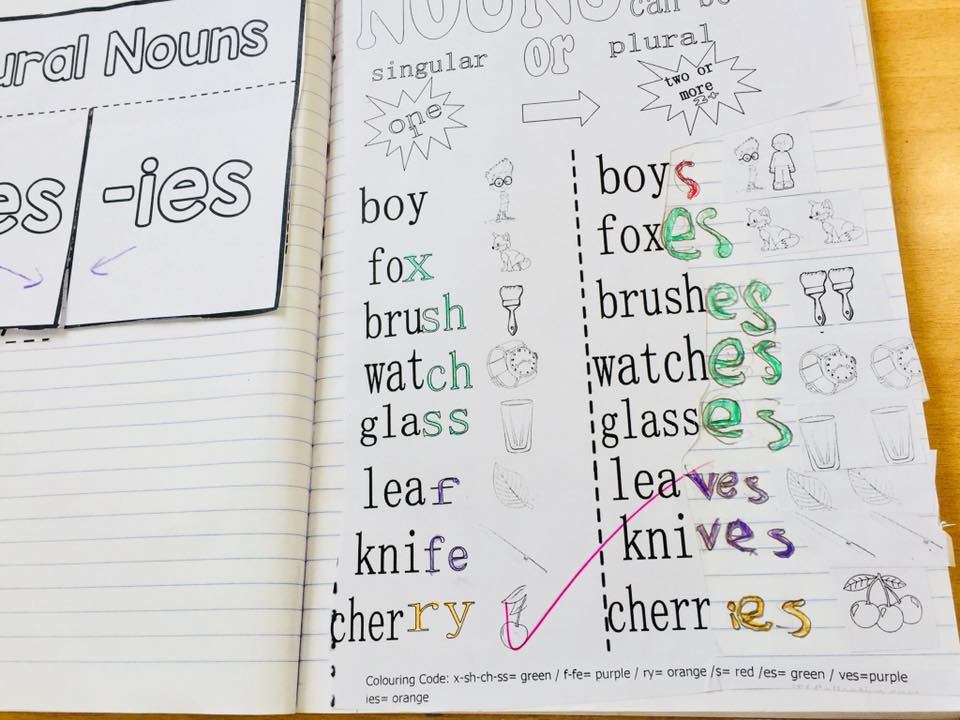 ural Nouns
es
-ies
NOUNS can be
singular or plural
one
1
two or
more
boy boys
fox foxes
brush brushes
watch watches
glass glasses
leaf leaves
knife knives
cherry cherries
Colouring Code: x-sh-ch-ss= green / f-fe= purple / ry= orange /s= red /es= green / ves=purple
ies= orange